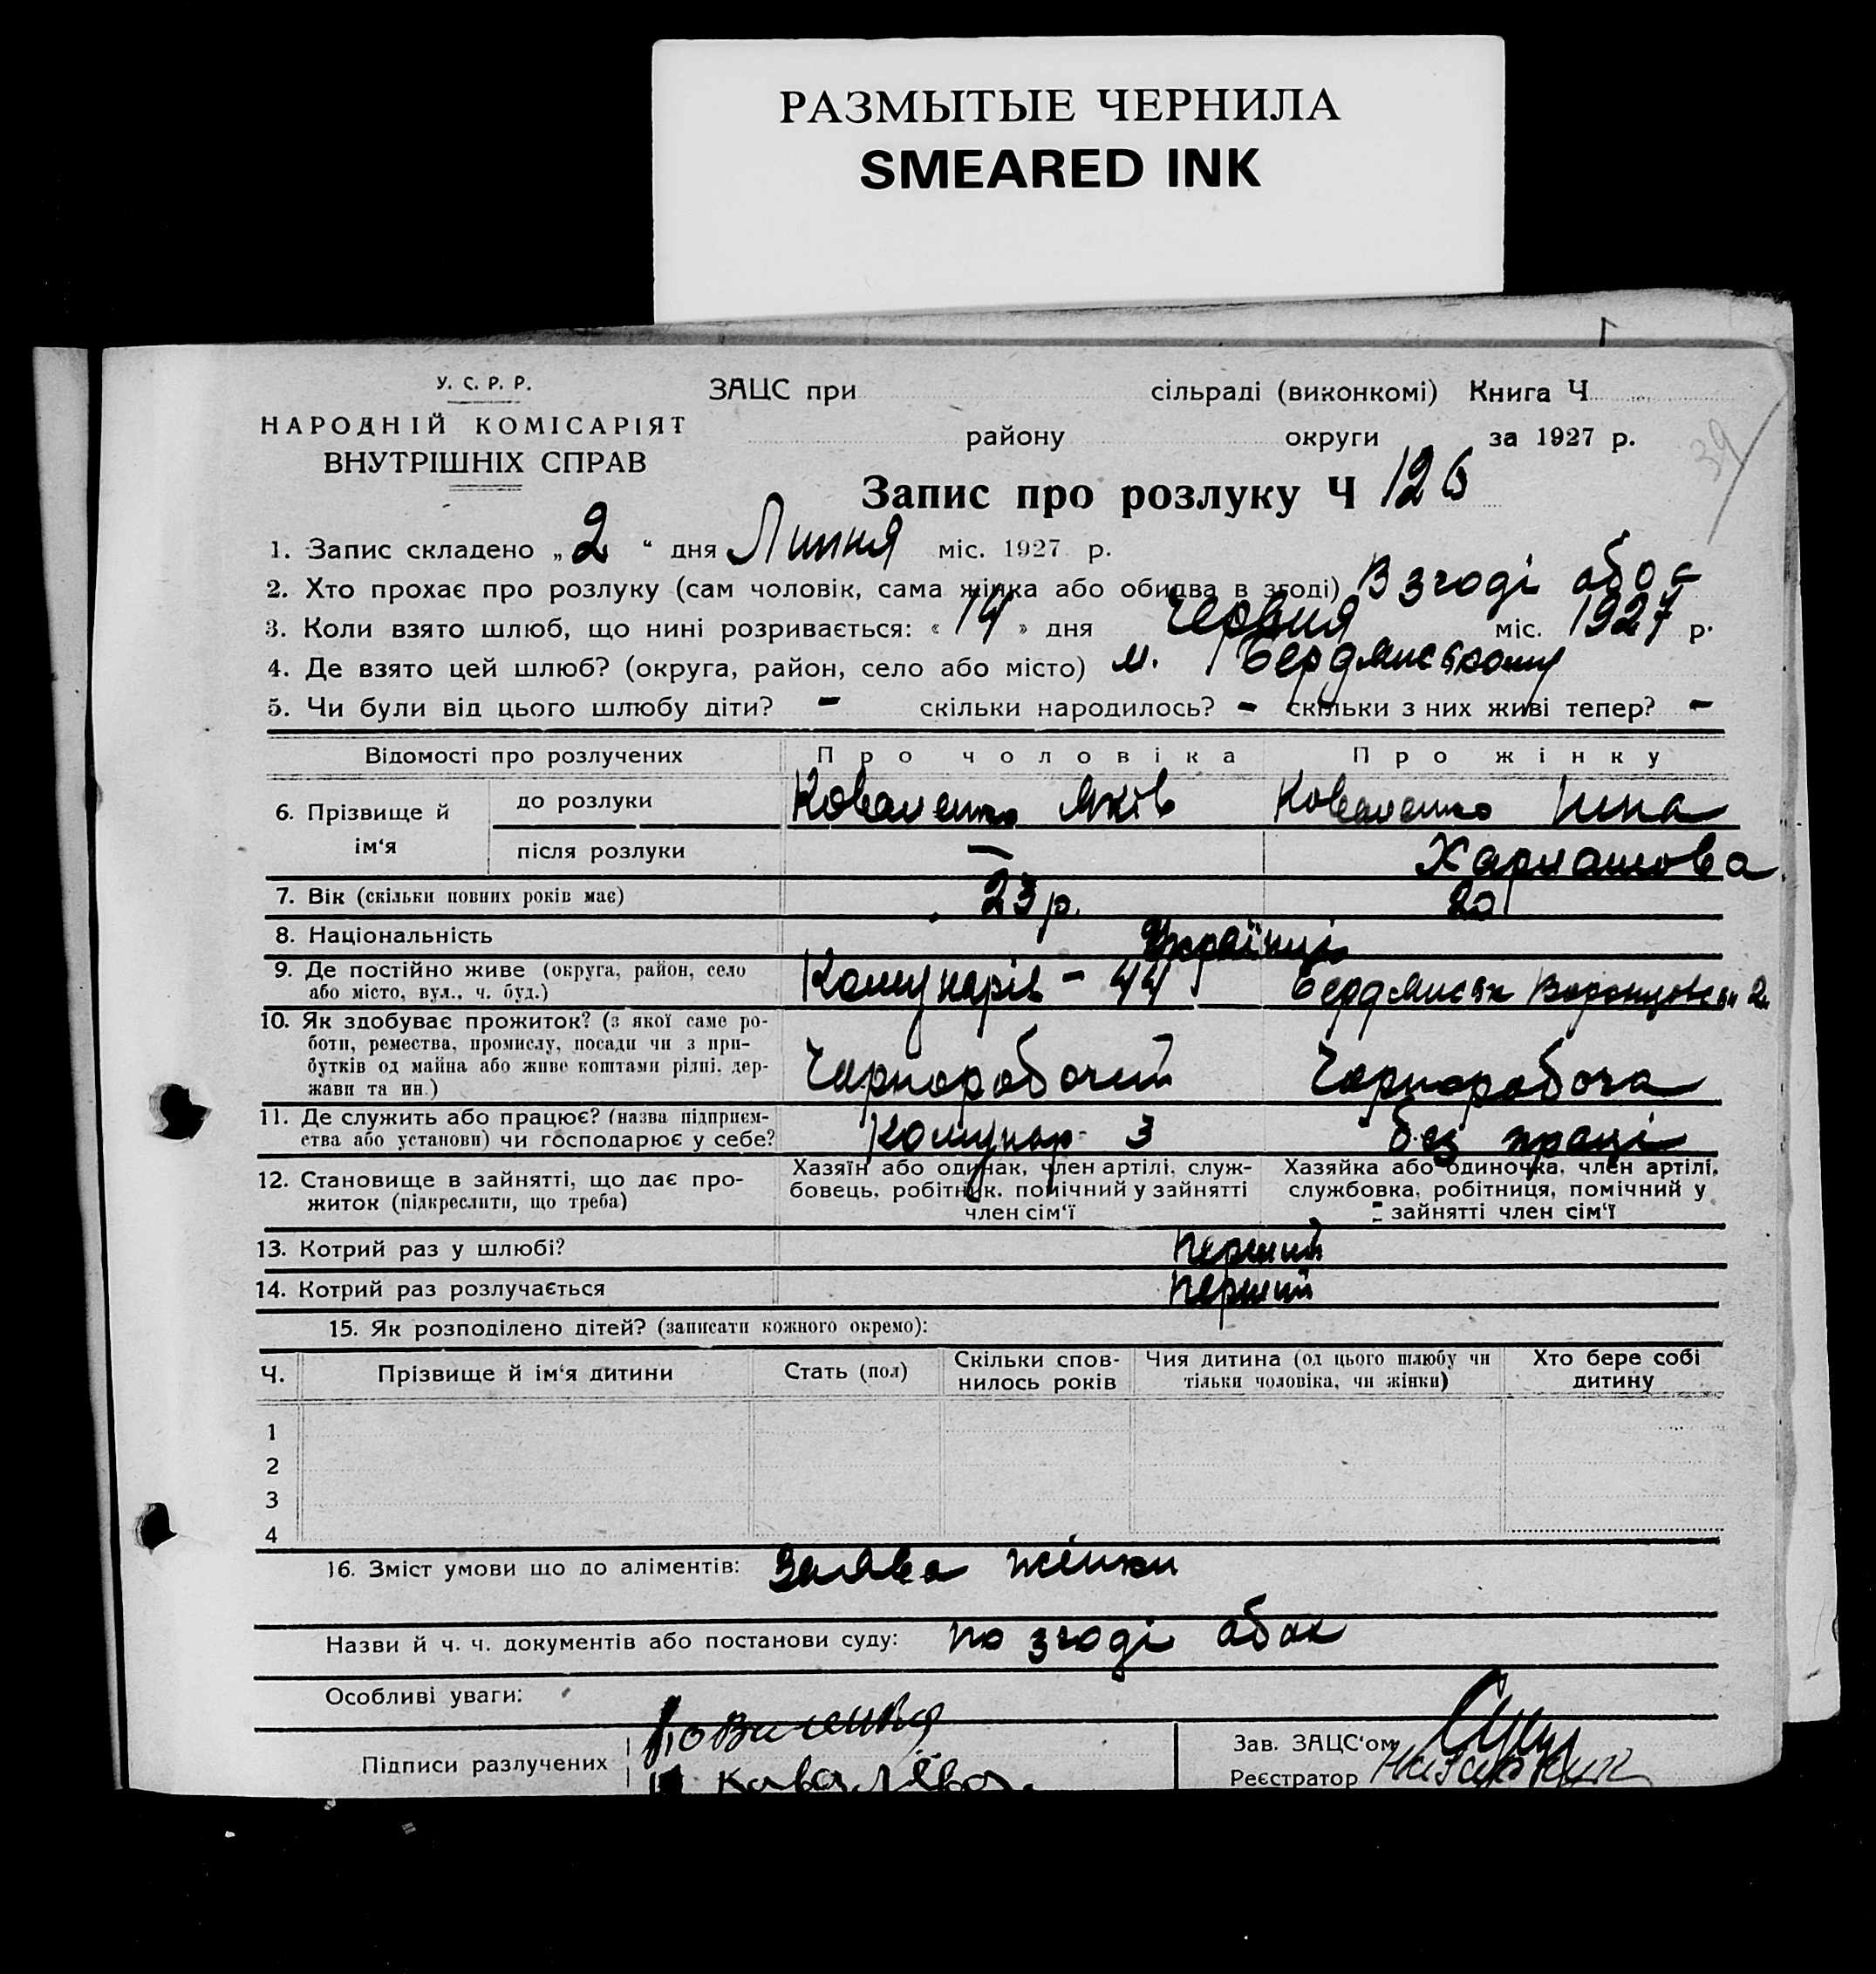 РАЗМЫТЫЕ ЧЕРНИЛА
SMEARED INK
У. С. Р. Р.
НАРОДНІЙ КОМІСАРІЯТ
ВНУТРІШНІХ СПРАВ
ЗАЦС при сільраді (виконкомі) Книга Ч
району округи за 1927 р.
39
Запис про розлуку Ч 126
1. Запис складено „2“ дня Липня міс. 1927 р.
2. Хто прохає про розлуку (сам чоловік, сама жінка або обидва в згоді) В згоді обоє
3. Коли взято шлюб, що нині розривається: «14» дня Червня міс. 1927 р.
4. Де взято цей шлюб? (округа, район, село або місто) м.
5. Чи були від цього шлюбу діти? - скільки народилось? - скільки з них живі тепер? -
Відомості про розлучених Про чоловіка Про жінку
6. Прізвище й ім‘я до розлуки Коваленко Яків Коваленко Нина
після розлуки —
7. Вік (скільки повних років має) 23 р. 20
8. Національність Українці
9. Де постійно живе (округа, район, село Комунарів - 44
або місто, вул., ч. буд.)
10. Як здобуває прожиток? (з якої саме ро-
боти, ремества, промислу, посади чи з при-
бутків од майна або живе коштами рідні, дер- Чорноробочий Чорноробоча
жави та ин.)
11. Де служить або працює? (назва підприєм- Комунар 3 без праці
ства або установи) чи господарює у себе?
12. Становище в зайнятті, що дає про-
житок (підкреслити, що треба)
Хазяїн або одинак, член артілі, служ-
бовець, робітник, помічний у зайнятті
член сім‘ї
Хазяйка або одиночка, член артілі,
службовка, робітниця, помічний у
зайнятті член сім‘ї
13. Котрий раз у шлюбі? перший
14. Котрий раз розлучається перший
15. Як розподілено дітей? (записати кожного окремо):
Ч. Прізвище й ім‘я дитини Стать (пол) Скільки спов-
нилось років Чия дитина (од цього шлюбу чи
тільки чоловіка, чи жінки) Хто бере собі
дитину
1
2
3
4
16. Зміст умови що до аліментів: Заява жінки
Назви й ч. ч. документів або постанови суду: по згоді обох
Особливі уваги:
Підписи разлучених
Зав. ЗАЦС‘ом
Реєстратор